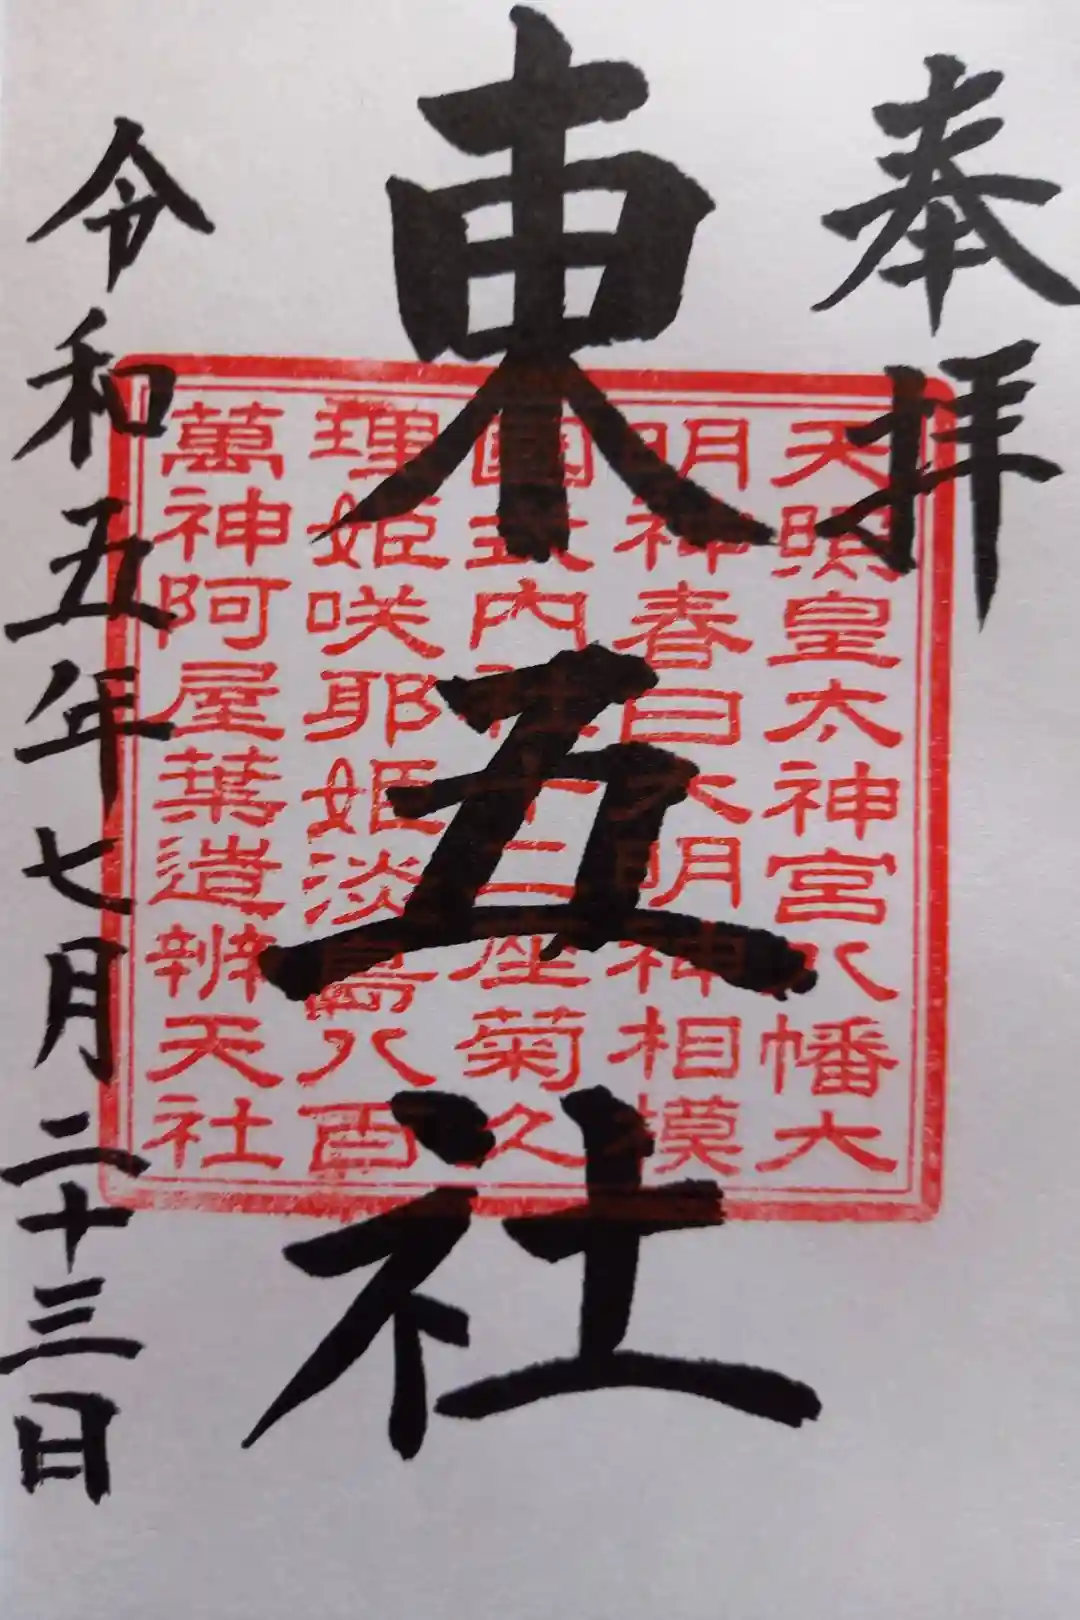 奉拝
東五社
令和五年七月二十三日
天照皇太神宮八幡大
明神春日大明神相模
國式内社十三座菊久
理姫咲耶姫淡島八百
萬神阿屋葉造辨天社